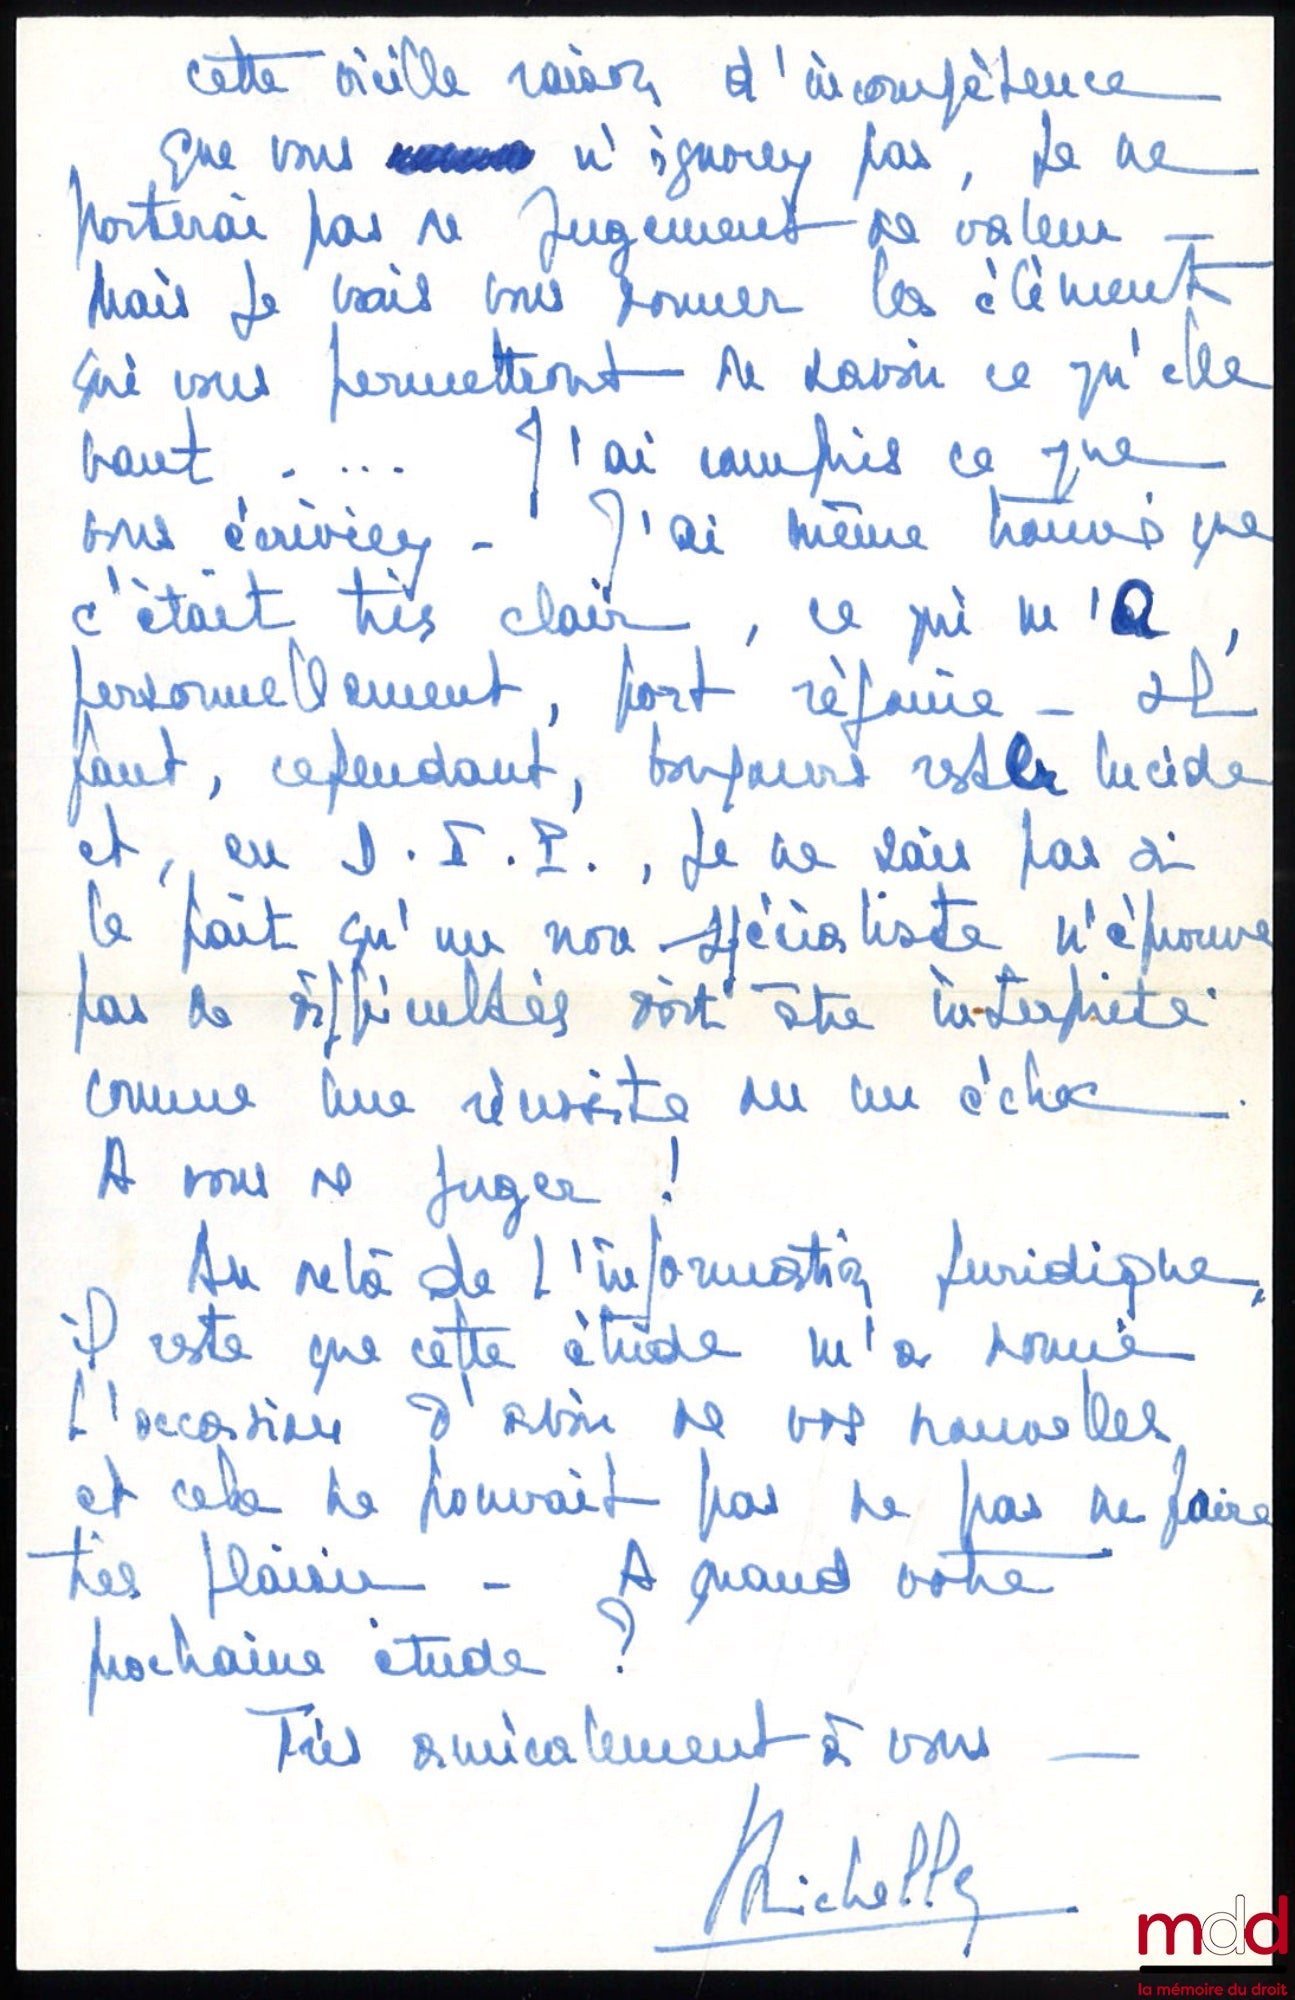 cette vieille raison d'incompétence
que vous n'ignorez pas, je ne
porterai pas de jugement de valeur —
Mais je vais vous donner les éléments
qui vous permettront de savoir ce qu'elle
vaut . ... J'ai compris ce que
vous écriviez - J'ai même trouvé que
c'était très clair, ce qui m'a,
personnellement, fort réjouie - Il
faut, cependant, toujours rester lucide
et, en D.I.P., je ne sais pas si
le fait qu'un non spécialiste n'éprouve
pas de difficultés doit être interprété
comme une réussite ou un échec.
A vous de juger !
Au delà de l'information juridique,
il reste que cette étude m'a donné
l'occasion d'avoir de vos nouvelles
et cela ne pouvait pas ne pas me faire
très plaisir - A quand votre
prochaine étude ?
Très amicalement à vous —
Michelle
mdd
la mémoire du droit